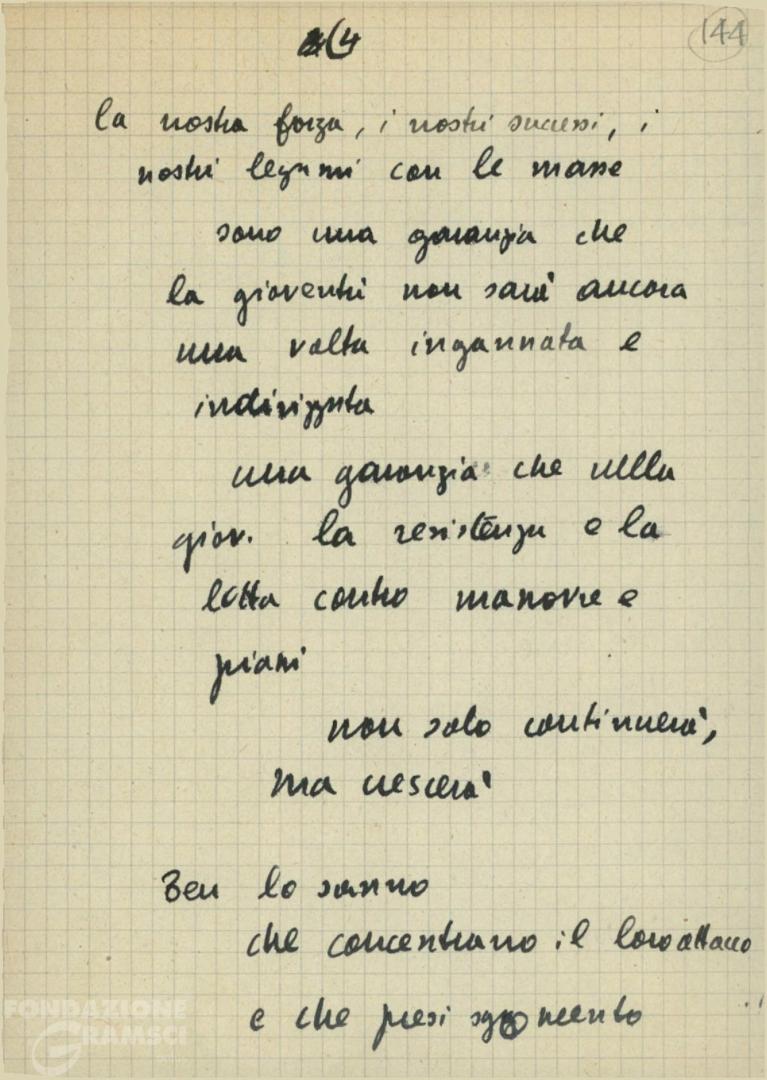 (4
144
la nostra forza, i nostri successi, i
nostri legami con le masse
sono una garanzia che
la gioventù non sarà ancora
una volta ingannata e
indirizzata
una garanzia che nella
giov. la resistenza e la
lotta contro manovre e
piani
non solo continuerà,
ma crescerà
Ben lo sanno
che concentrano il loro attacco
e che presi sgomento
FONDAZIONE
GRAMSCI